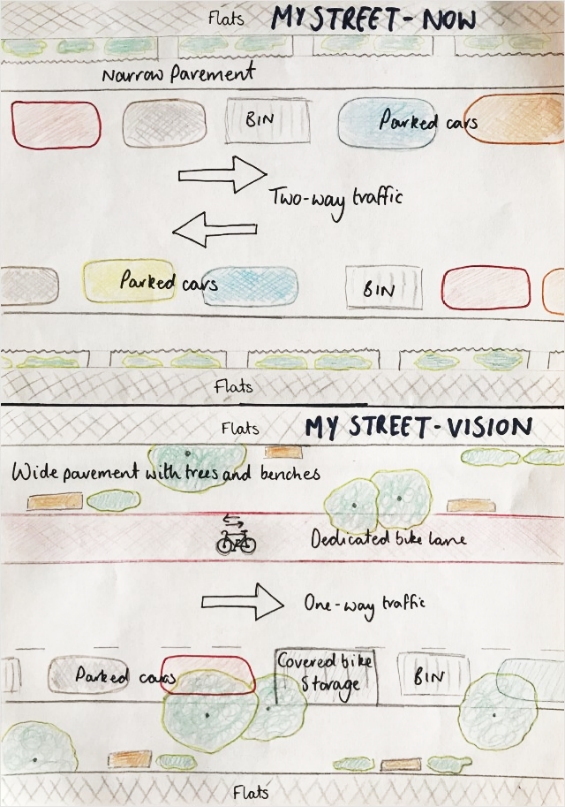 Flats MY STREET - NOW
Narrow Pavement
BIN
Parked cars
Two-way traffic
Parked cars
BIN
Flats
Flats MY STREET - VISION
Wide pavement with trees and benches
Dedicated bike lane
One-way traffic
Parked cars
Covered bike
Storage
BIN
Flats